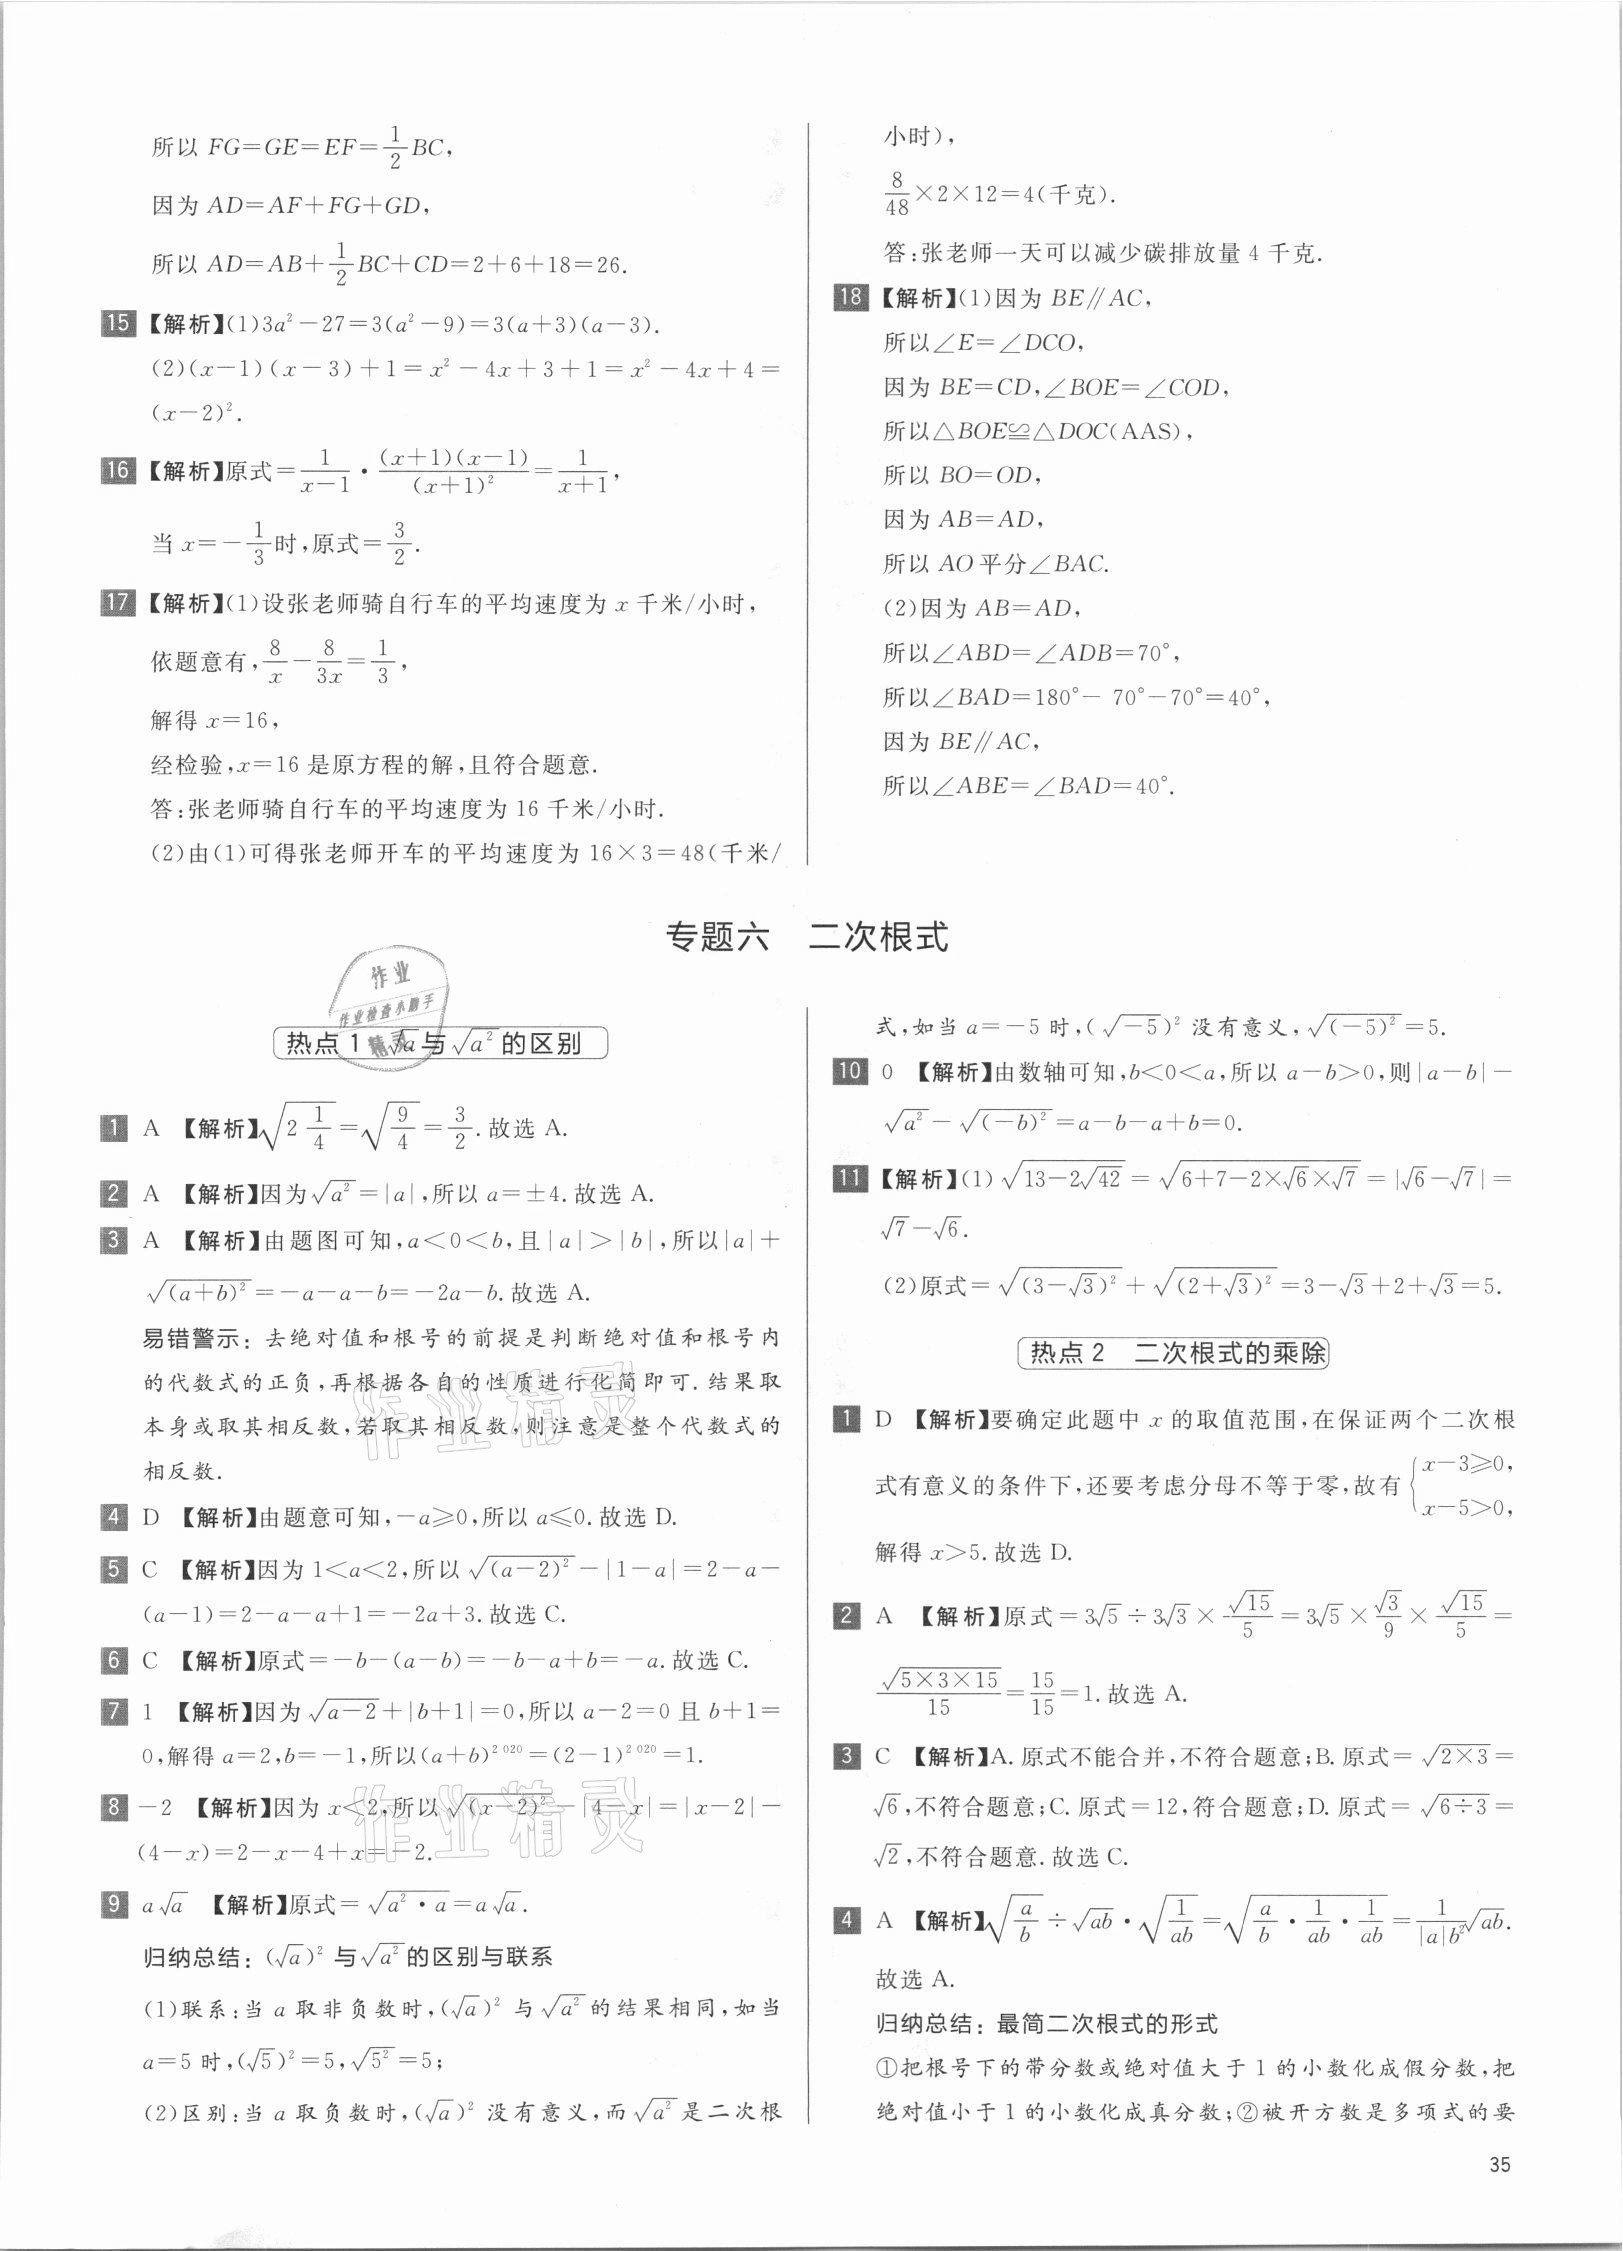 所以 FG=GE=EF=1/2 BC,
因为 AD=AF+FG+GD,
所以 AD=AB+1/2 BC+CD=2+6+18=26.
15 【解析】(1)3a²-27=3(a²-9)=3(a+3)(a-3).
(2)(x-1)(x-3)+1=x²-4x+3+1=x²-4x+4=
(x-2)².
16 【解析】原式=1/(x-1)·(x+1)(x-1)/(x+1)²=1/(x+1),
当 x=-1/3时,原式=3/2.
17 【解析】(1)设张老师骑自行车的平均速度为 x 千米/小时,
依题意有,8/x-8/3x=1/3,
解得 x=16,
经检验,x=16 是原方程的解,且符合题意.
答:张老师骑自行车的平均速度为 16 千米/小时.
(2)由(1)可得张老师开车的平均速度为 16×3=48(千米/
小时),
8/48×2×12=4(千克).
答:张老师一天可以减少碳排放量 4 千克.
18 【解析】(1)因为 BE∥AC,
所以∠E=∠DCO,
因为 BE=CD,∠BOE=∠COD,
所以△BOE≌△DOC(AAS),
所以 BO=OD,
因为 AB=AD,
所以 AO 平分∠BAC.
(2)因为 AB=AD,
所以∠ABD=∠ADB=70°,
所以∠BAD=180°- 70°-70°=40°,
因为 BE∥AC,
所以∠ABE=∠BAD=40°.
专题六 二次根式
作业
作业检查小助手
精灵
热点 1 √a与√a²的区别
1 A 【解析】√(2 1/4)=√(9/4)=3/2.故选 A.
2 A 【解析】因为√a²=|a|,所以 a=±4.故选 A.
3 A 【解析】由题图可知,a<0<b,且|a|>|b|,所以|a|+
√(a+b)²=-a-a-b=-2a-b.故选 A.
易错警示：去绝对值和根号的前提是判断绝对值和根号内
的代数式的正负,再根据各自的性质进行化简即可.结果取
本身或取其相反数,若取其相反数,则注意是整个代数式的
相反数.
4 D 【解析】由题意可知,-a≥0,所以 a≤0.故选 D.
5 C 【解析】因为 1<a<2,所以 √(a-2)²-|1-a|=2-a-
(a-1)=2-a-a+1=-2a+3.故选 C.
6 C 【解析】原式=-b-(a-b)=-b-a+b=-a.故选 C.
7 1 【解析】因为√(a-2)+|b+1|=0,所以 a-2=0 且 b+1=
0,解得 a=2,b=-1,所以(a+b)²⁰²⁰=(2-1)²⁰²⁰=1.
8 -2 【解析】因为 x<2,所以 √(x-2)²-|4-x|=|x-2|-
(4-x)=2-x-4+x=-2.
9 a√a 【解析】原式=√(a²·a)=a√a.
归纳总结：(√a)²与√a²的区别与联系
(1)联系:当 a 取非负数时,(√a)² 与√a²的结果相同,如当
a=5 时,(√5)²=5,√5²=5;
(2)区别:当 a 取负数时,(√a)² 没有意义,而√a²是二次根
式,如当 a=-5 时,(√-5)² 没有意义,√(-5)²=5.
10 0 【解析】由数轴可知,b<0<a,所以 a-b>0,则|a-b|-
√a²-√(-b)²=a-b-a+b=0.
11 【解析】(1)√(13-2√42)=√(6+7-2×√6×√7)=|√6-√7|=
√7-√6.
(2)原式=√(3-√3)²+√(2+√3)²=3-√3+2+√3=5.
热点 2 二次根式的乘除
1 D 【解析】要确定此题中 x 的取值范围,在保证两个二次根
式有意义的条件下,还要考虑分母不等于零,故有{x-3≥0, x-5>0,
解得 x>5.故选 D.
2 A 【解析】原式=3√5÷3√3×√15/5=3√5×√3/9×√15/5=
√(5×3×15)/15=15/15=1.故选 A.
3 C 【解析】A.原式不能合并,不符合题意;B.原式=√(2×3)=
√6,不符合题意;C.原式=12,符合题意;D.原式=√(6÷3)=
√2,不符合题意.故选 C.
4 A 【解析】√(a/b)÷√ab·√(1/ab)=√(a/b·1/ab·1/ab)=1/(|a|b²)√ab.
故选 A.
归纳总结：最简二次根式的形式
①把根号下的带分数或绝对值大于 1 的小数化成假分数,把
绝对值小于 1 的小数化成真分数;②被开方数是多项式的要
作业精灵
作业精灵
35